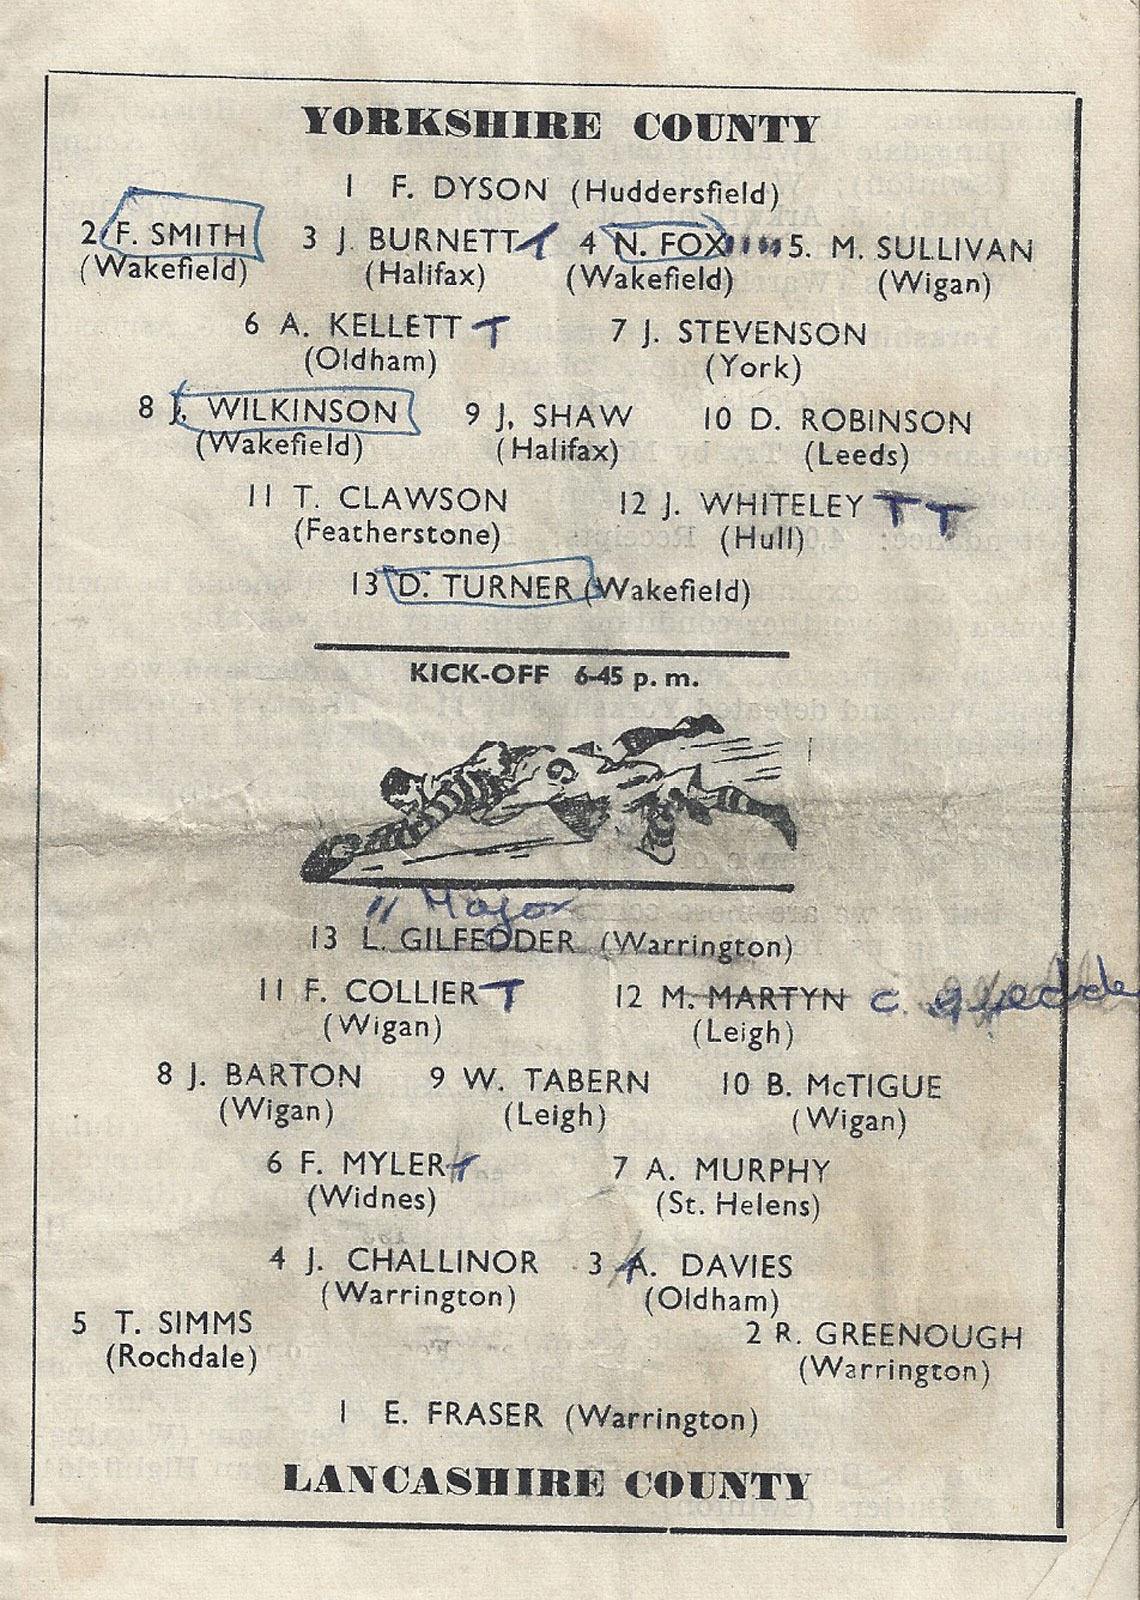 YORKSHIRE COUNTY
1 F. DYSON (Huddersfield)
2 F. SMITH 3 J. BURNETT T 4 N. FOX 5. M. SULLIVAN
(Wakefield) (Halifax) (Wakefield) (Wigan)
6 A. KELLETT T 7 J. STEVENSON
(Oldham) (York)
8 J. WILKINSON 9 J. SHAW 10 D. ROBINSON
(Wakefield) (Halifax) (Leeds)
11 T. CLAWSON 12 J. WHITELEY T T
(Featherstone) (Hull)
13 D. TURNER (Wakefield)
KICK-OFF 6-45 p.m.
9
" Major
13 L. GILFEDDER (Warrington)
11 F. COLLIER T 12 M. MARTYN C.
(Wigan) (Leigh)
8 J. BARTON 9 W. TABERN 10 B. McTIGUE
(Wigan) (Leigh) (Wigan)
6 F. MYLER T 7 A. MURPHY
(Widnes) (St. Helens)
4 J. CHALLINOR 3 A. DAVIES
(Warrington) (Oldham)
5 T. SIMMS 2 R. GREENOUGH
(Rochdale) (Warrington)
1 E. FRASER (Warrington)
LANCASHIRE COUNTY